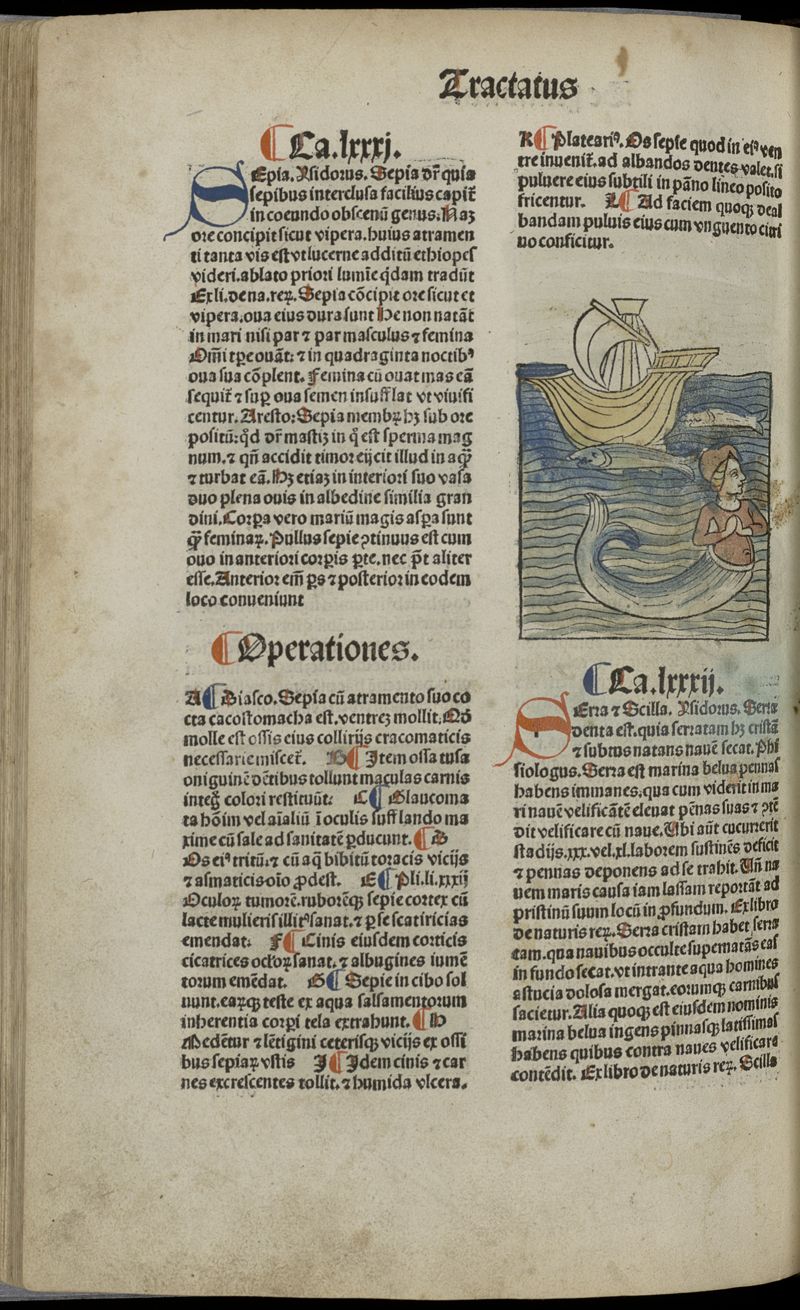 Tractatus
¶ Ca.lxxxj.
SEpia. Ysidorus. Sepia dr̄ quia
sepibus interclusa facilius capit᷑
in coeundo obscenū genus. Naʒ
ore concipit sicut vipera. huius atramen
ti tanta vis est vt lucerne additū ethiopes
videri. ablato priori lumīe q̄dam tradūt
Ex li. de na. reꝝ. Sepia cōcipit ore sicut et
vipera. oua eius dura sunt He non natāt
in mari nisi par ⁊ par masculus ⁊ femina
Om̄i tp̄e ouāt: ⁊ in quadraginta noctibꝰ
oua sua cōplent. Femina cū ouat mas eā
sequit᷑ ⁊ suꝑ oua semen insufflat vt viuifi
centur. Aresto: Sepia membꝝ hʒ sub ore
positū: qd̄ dr̄ mastiʒ in q̊ est sperma mag
num. ⁊ qn̄ accidit timor eijcit illud in aq̄ʒ
⁊ turbat eā. Hʒ etiaʒ in interiori suo vasa
duo plena ouis in albedine similia gran
dini. Corꝑa vero mariū magis asꝑa sunt
q̄ʒ feminaꝝ. Pullus sepie ꝯtinuus est cum
ouo in anteriori corꝑis ꝑte. nec pōt aliter
esse. Anterior em̄ ꝑs ⁊ posterior in eodem
loco conueniunt
¶ Operationes.
A¶ Diasco. Sepia cū atramento suo co
cta cacostomacha est. ventreʒ mollit.
molle est ossis eius collirijs cracomaticis
necessarie miscet᷑. B¶ Item ossa tusa
oni guinē dētibus tollunt maculas carnis
integ̊ colori restituūt: C¶ Glaucoma
ta hoīm vel aīaliū ī oculis sufflando ma
xime cū sale ad sanitatē ꝑducunt. ¶ D
Os eiꝰ tritū: ⁊ cū aq̄ bibitū toracis vicijs
⁊ asmaticis oīo ꝓdest. E¶ Pli. li. xxxij
Oculoꝝ tumorē. ruborēqʒ sepie cortex cū
lacte mulieris illitꝰ sanat. ⁊ ꝑ se scatiricias
emendat: F¶ Cinis eiusdem corticis
cicatrices ocl'oꝝ sanat. ⁊ albugines iumē
torum emēdat. G¶ Sepie in cibo sol
uunt. earqʒ teste ex aqua salsamentorum
inherentia corꝑi tela extrahunt. ¶ H
Medētur ⁊ lētigini ceterisqʒ vicijs ex ossi
bus sepiaꝝ vstis I¶ Idem cinis ⁊ car
nes excrescentes tollit. ⁊ humida vlcera.
K¶ Platearꝰ. Os sepie quod in eiꝰ ven
tre inuenit᷑. ad albandos dentes valet. si
puluere eius subtili in pāno lineo posito
fricentur. L¶ Ad faciem quoqʒ deal
bandam puluis eius cum vnguento citri
no conficitur.
¶ Ca.lxxxij.
SErra ⁊ Scilla. Ysidorus. Serra
denta est. quia serratam hʒ cristā
⁊ subtus natans nauē secat. Phi
siologus. Serra est marina belua pennas
habens immanes. qua cum viderit in ma
ri nauē velificātē eleuat pēnas suas ⁊ ꝯtē
dit velificare cū naue. Ubi aūt cucurrerit
stadijs. xxx. vel. xl. laborem sustinēs deficit
⁊ pennas deponens ad se trahit. Un̄ na
uem maris causa iam lassam reportāt ad
pristinū suum locū in ꝓfundum. Ex libro
de naturis reꝝ. Serra cristam habet serra
tam. qua nauibus occulte supernatās eas
in fundo secat. vt intrante aqua homines
astucia dolosa mergat. eorumqʒ carnibus
sacietur. Alia quoqʒ est eiusdem nominis
marina belua ingens pinnasqʒ latissimas
habens quibus contra naues velificare
contēdit. Ex libro de naturis reꝝ. Scilla